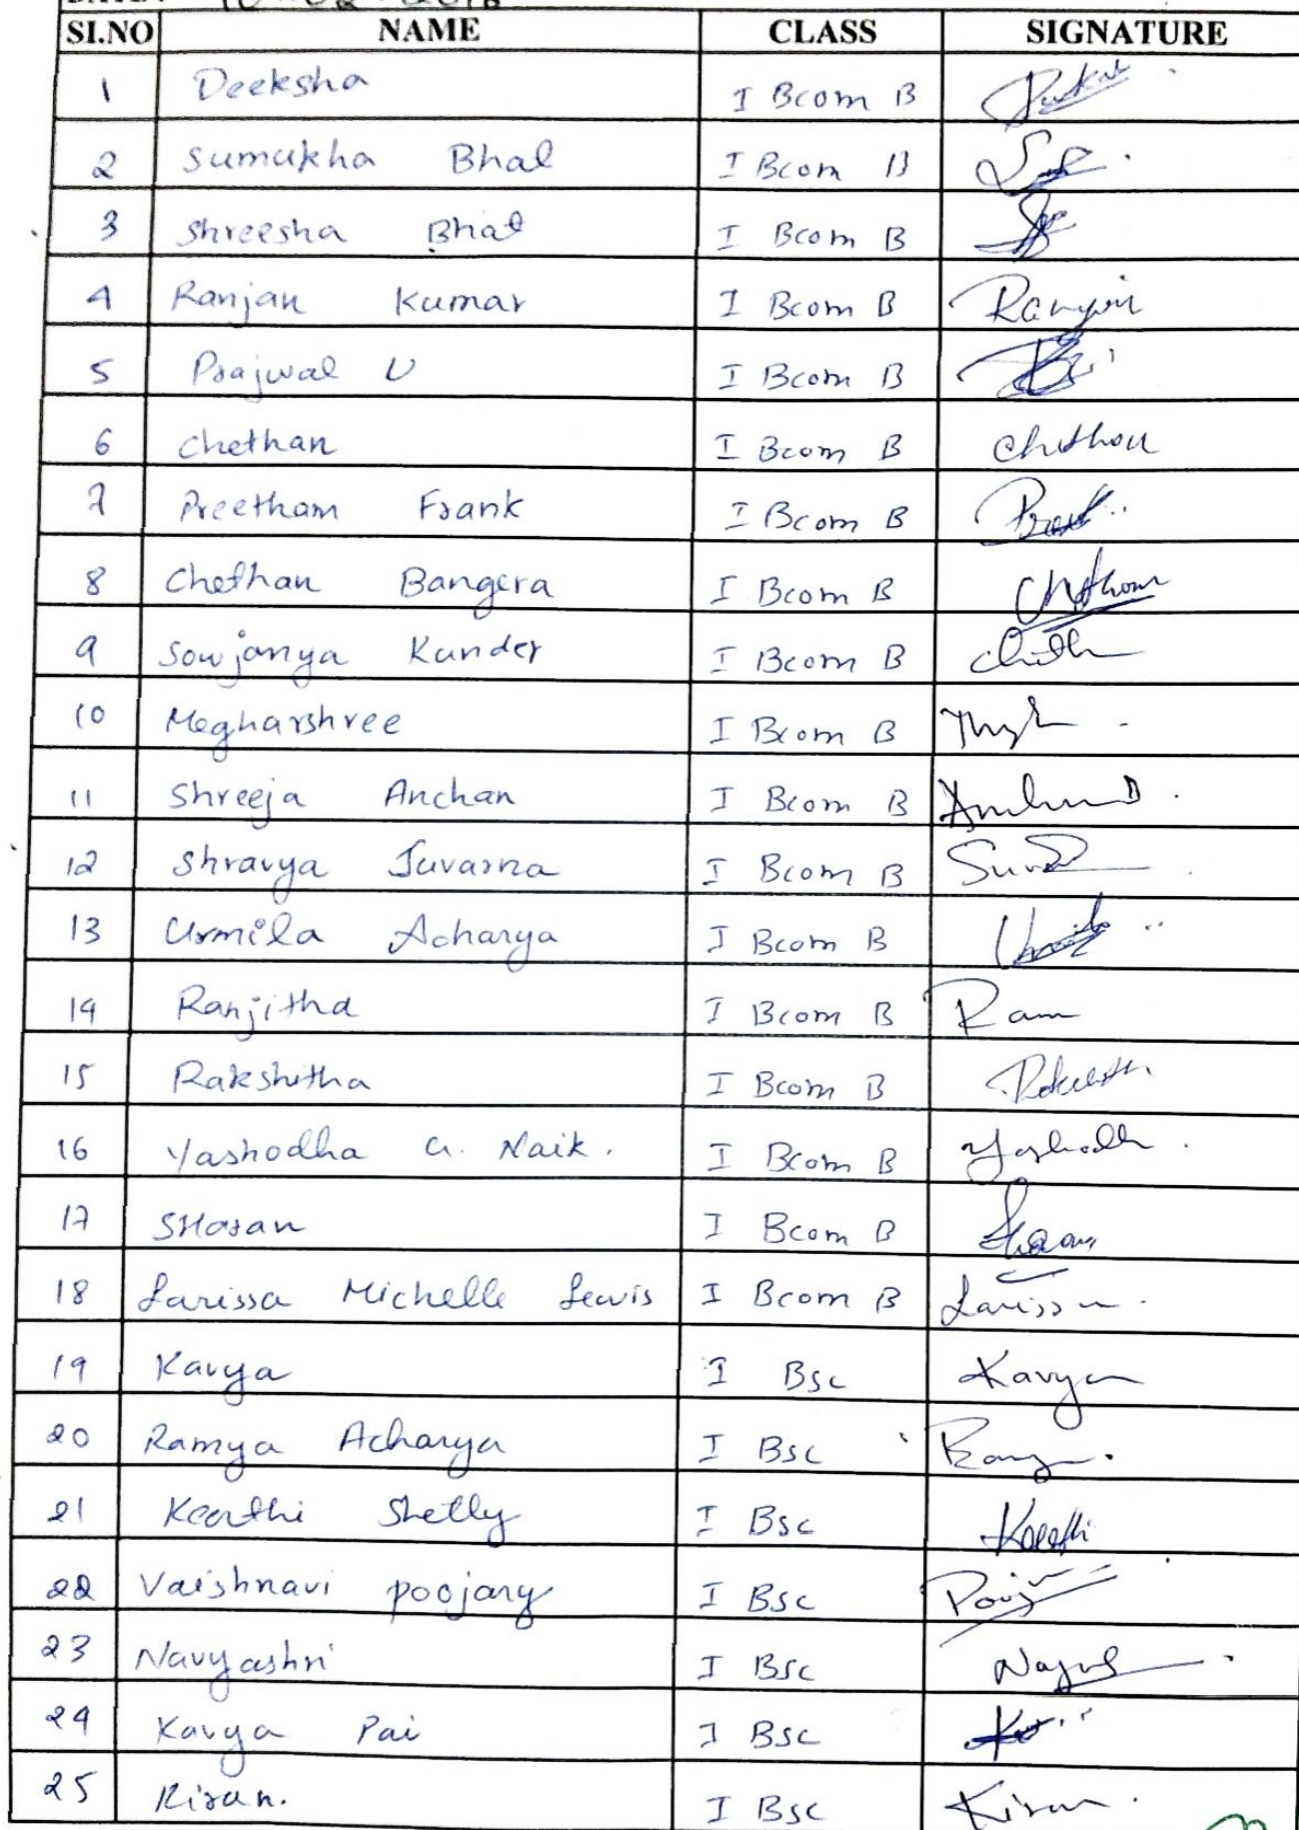 SI.NO NAME CLASS SIGNATURE
1 Deeksha I Bcom B
2 Sumukha Bhat I Bcom B
3 Shreesha Bhat I Bcom B
4 Ranjan Kumar I Bcom B Ranjan
5 Prajwal U I Bcom B
6 Chethan I Bcom B Chethan
7 Preetham Frank I Bcom B
8 Chethan Bangera I Bcom B Chethan
9 Sowjanya Kunder I Bcom B
10 Megharshree I Bcom B
11 Shreeja Anchan I Bcom B
12 Shravya Suvarna I Bcom B
13 Urmila Acharya I Bcom B
14 Ranjitha I Bcom B
15 Rakshitha I Bcom B
16 Yashodha G. Naik. I Bcom B
17 SHaran I Bcom B
18 Larissa Michelle Lewis I Bcom B Larissa
19 Kavya I Bsc Kavya
20 Ramya Acharya I Bsc
21 Keerthi Shetty I Bsc Keerthi
22 Vaishnavi poojary I Bsc
23 Navyashri I Bsc
24 Kavya Pai I Bsc
25 Kiran. I Bsc Kiran.